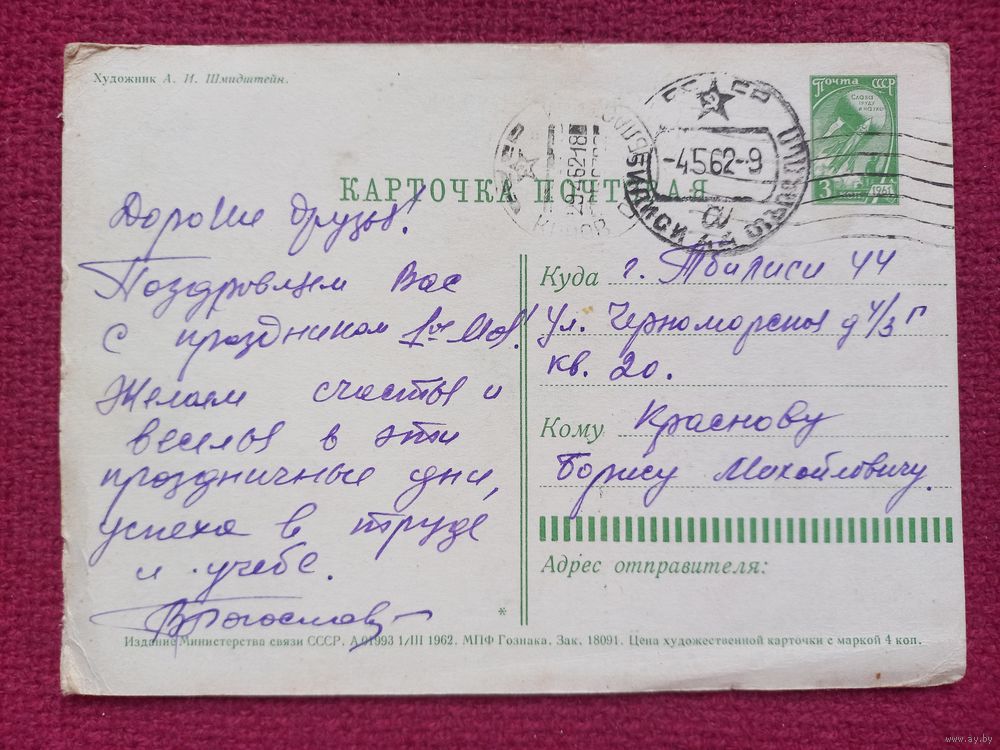 Художник А. И. Шмидштейн.
Почта СССР
Слава труду и науке
3 коп
1961
-4562-9
29 4 62-18
КИРОВ
ТБИЛИСИ
КАРТОЧКА ПОЧТОВАЯ
Дорогие друзья!
Поздравляем Вас
с праздником 1го Мая!
Желаем счастья и
веселья в эти
праздничные дни,
успеха в труде
и учебе.
Куда г. Тбилиси 44
ул. Черноморская д 4/3 г
кв. 20.
Кому Краснову
Борису Михайловичу.
Адрес отправителя:
*
Издание Министерства связи СССР. А 01993 1/III 1962. МПФ Гознака. Зак. 18091. Цена художественной карточки с маркой 4 коп.
www.ay.by